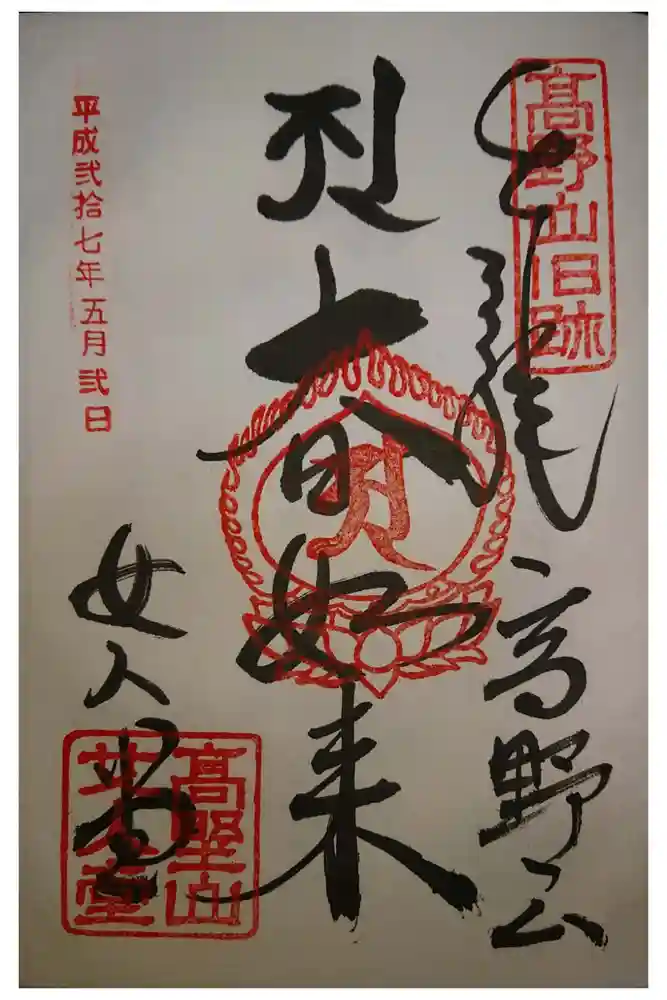 奉拝 高野山
高野山旧跡
𑖀 大日如来
女人堂
高野山
女人堂
平成弐拾七年五月弐日